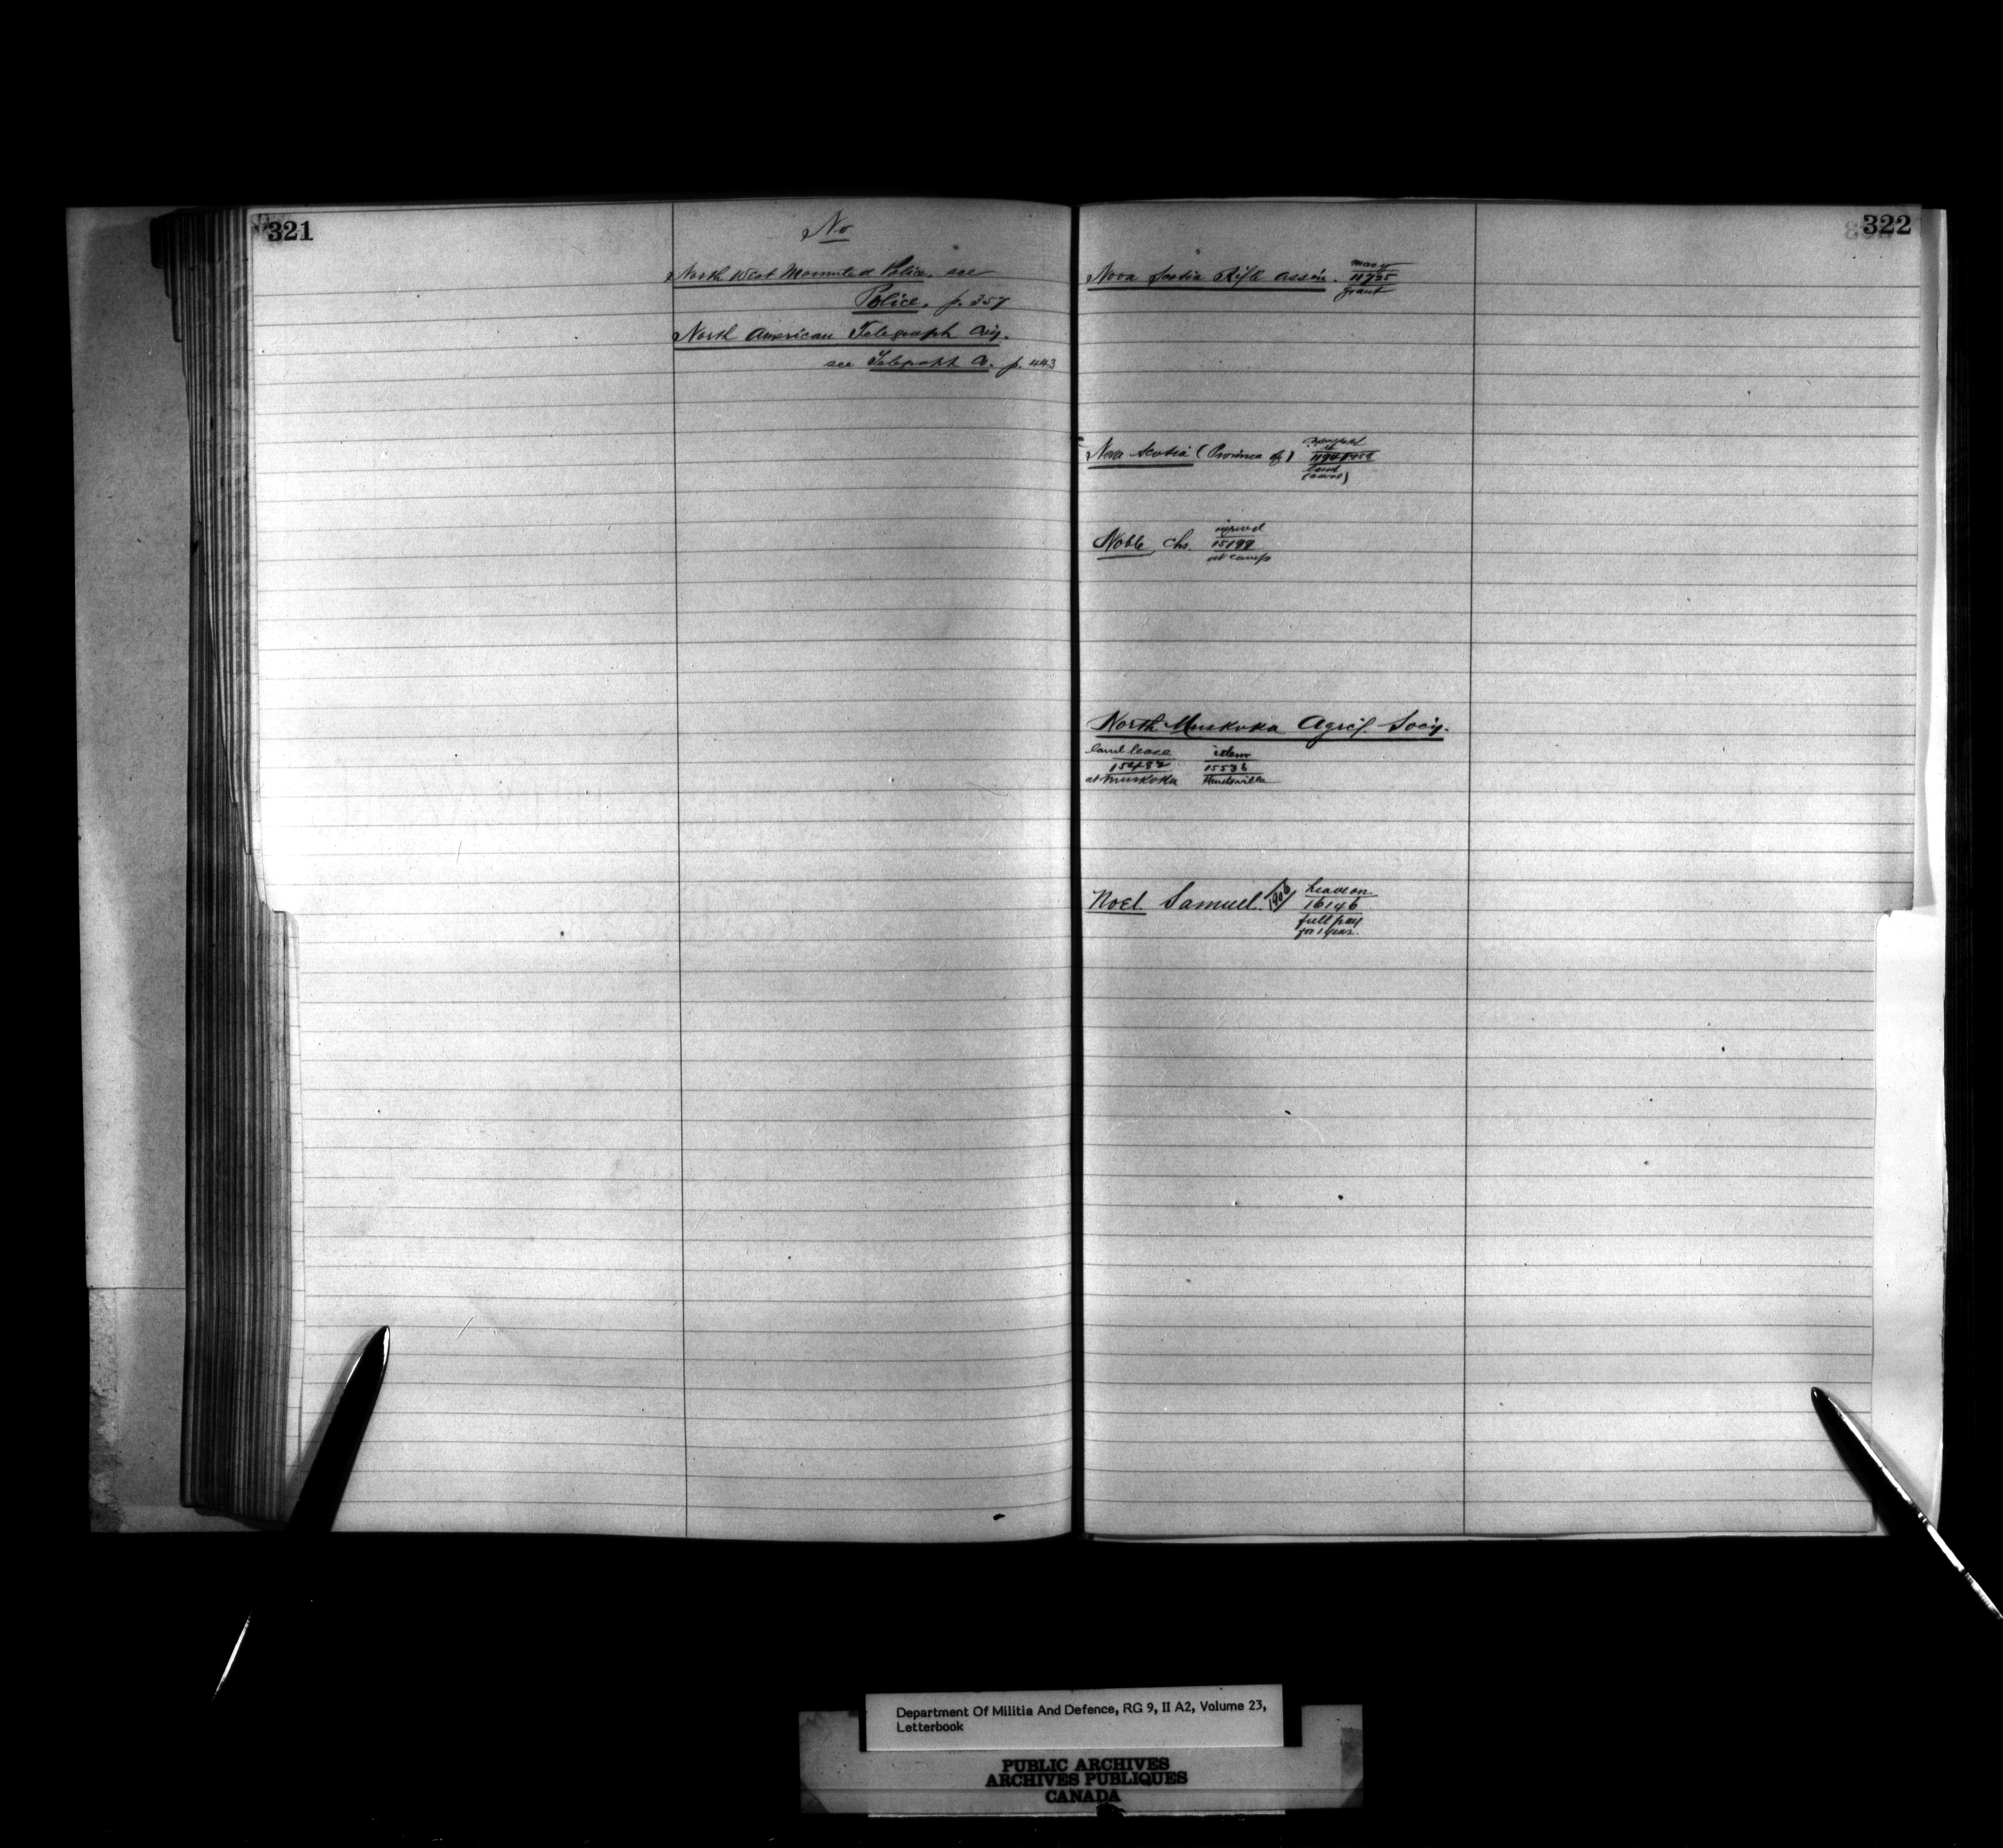 321
No
North West Mounted Police, see
Police, p. 357
North American Telegraph Coy.
see Telegraph Co. p. 443
322
Nova Scotia Rifle Assn.
11725
grant
Nova Scotia (Province of)
land
Noble, Chs.
injured
15199
at camp
North Muskoka Agric'l. Socy.
land lease
at Muskoka
idem
15536
Huntsville
Noel Samuel. 1906
Leave on
16146
full pay
for 1 year.
Department Of Militia And Defence, RG 9, II A2, Volume 23,
Letterbook
PUBLIC ARCHIVES
ARCHIVES PUBLIQUES
CANADA